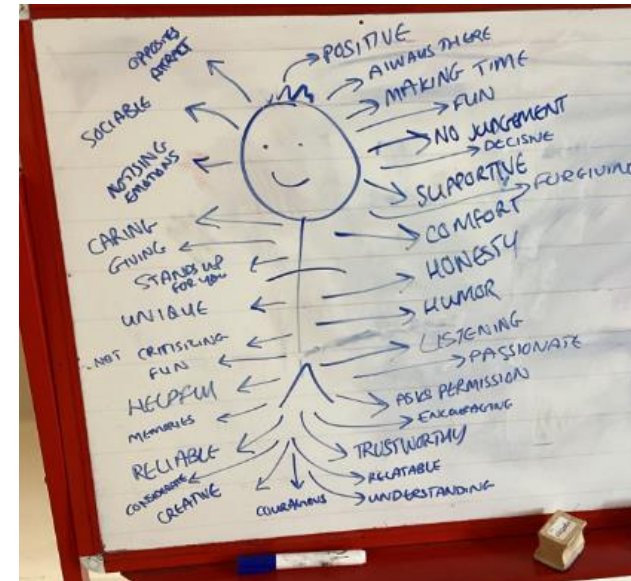 OPPOSITES
ATTRACT
SOCIABLE
NOTISING
EMOTIONS
CARING
GIVING
STANDS UP
FOR YOU
UNIQUE
NOT CRITISIZING
FUN
HELPFUL
MEMORIES
RELIABLE
CONSIDERATE
CREATIVE
COURAGIOUS
POSITIVE
ALWAYS THERE
MAKING TIME
FUN
NO JUDGEMENT
DECISIVE
SUPPORTIVE
FORGIVING
COMFORT
HONESTY
HUMOR
LISTENING
PASSIONATE
ASKS PERMISSION
ENCOURAGING
TRUSTWORTHY
RELATABLE
UNDERSTANDING